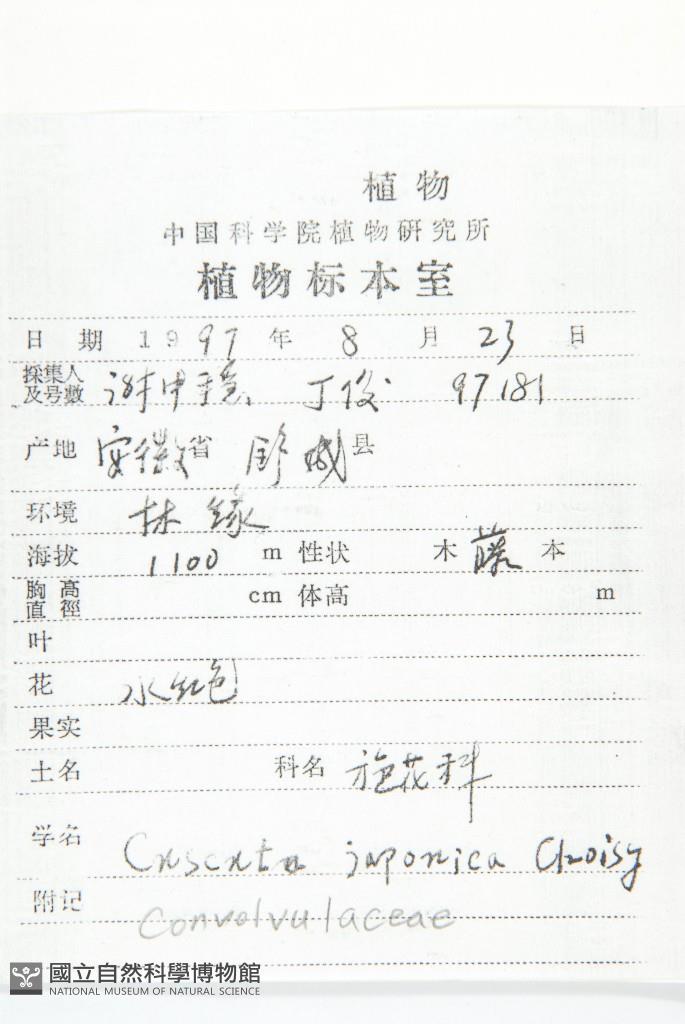 植物
中国科学院植物研究所
植物标本室
日期 1997 年 8 月 23 日
採集人及号数 谢中稳、丁俊 97181
产地 安徽省 舒城县
环境 林缘
海拔 1100 m 性状 木 藤 本
胸高直徑 cm 体高 m
叶
花 水红色
果实
土名 科名 旋花科
学名 Cuscuta japonica Choisy
附记 Convolvulaceae
國立自然科學博物館
NATIONAL MUSEUM OF NATURAL SCIENCE